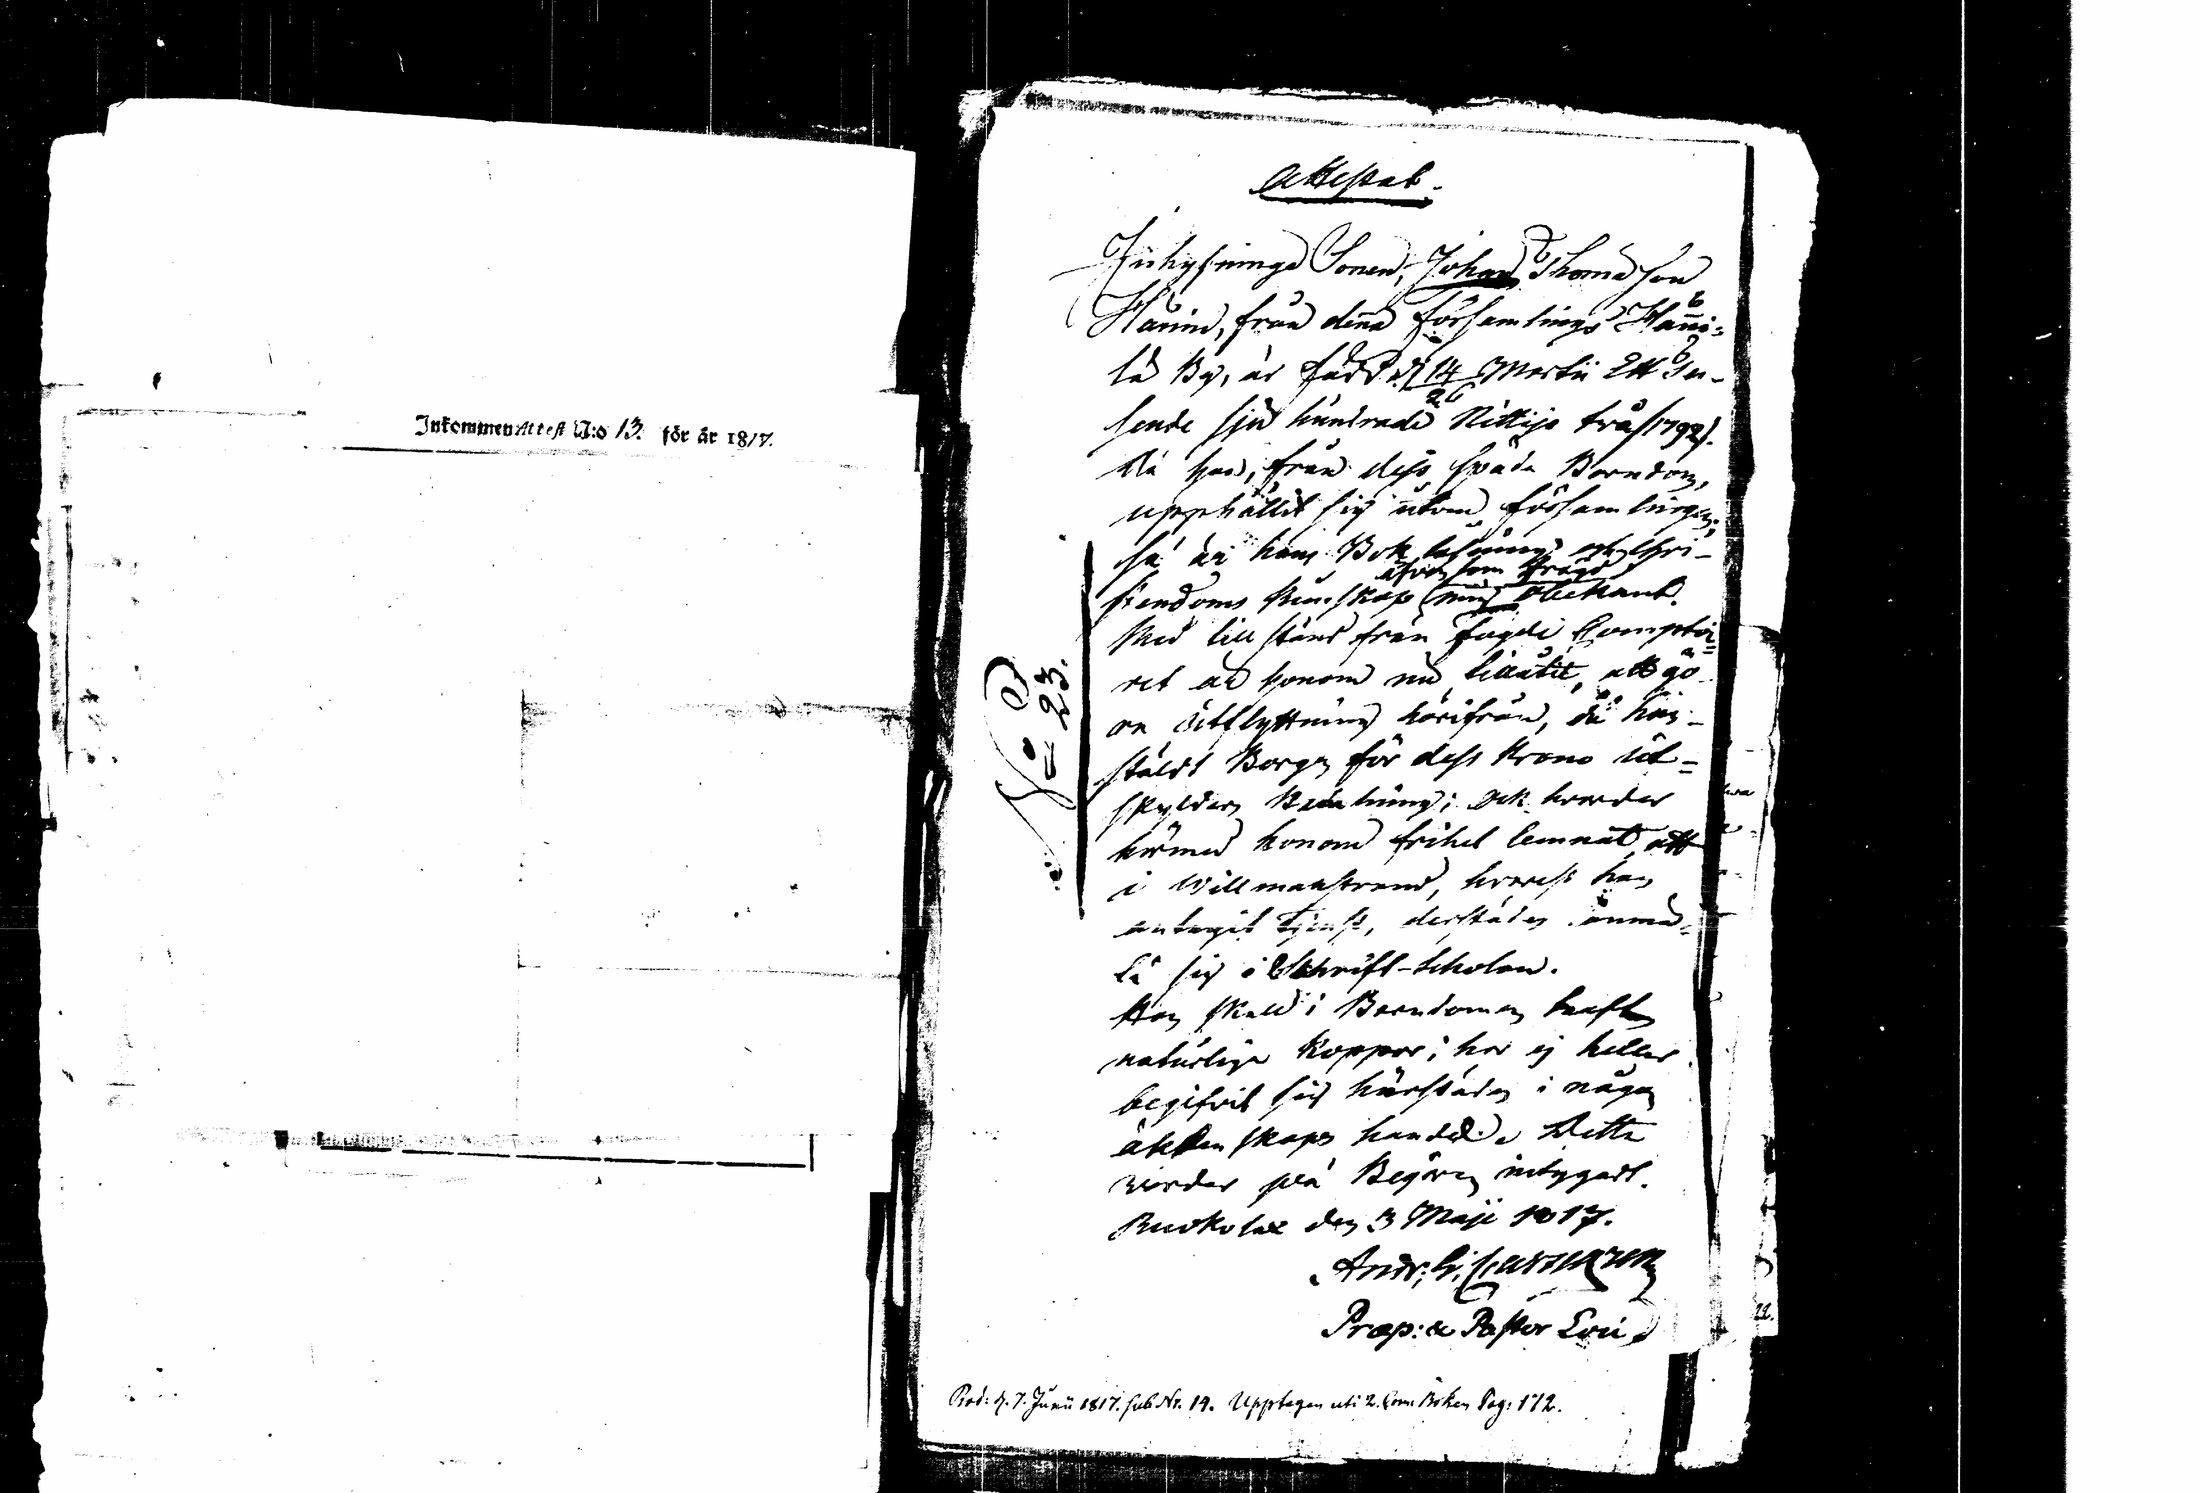 Inkommen Attest N:o 13. för år 1817.
Attestat.
Inhysings Sonen, Johan Thomasson
Hanni, från denna församlings Hanni-
la By, är född d 14 Martii Ett Tu-
sende sju hundrade Nittijo två /1792/.
Då han, från dess späda Barndom,
uppehållit sig utom församlingen;
så är hans Bok läsning och Chri-
stendoms kunskap äfvensom frägd mig obekant.
Med tillstånd från fogde Comptoi-
ret är honom nu tillåtit, att gö-
ra utflyttning härifrån, då han
stäldt Borgen för dess Krono ut-
skylders Betalning; Och warder
härmed honom frihet lemnat, att
i Willmanstrand, hvarest han
antagit tjenst, derstädes anmä-
la sig i Schrift-Scholan.
Han skall i Barndomen haft
naturliga Koppor; har ej heller
begifvit sig härstädes i någon
äktenskaps handel. Detta
warder på Begäran intygadt.
Ruokolax den 3 Maji 1817.
And:
Præp: & Pastor Loci
No 23.
Prod: d. 7. Junii 1817. sub Nr. 19. Upptagen uti 2. Com: Boken Pag: 172.